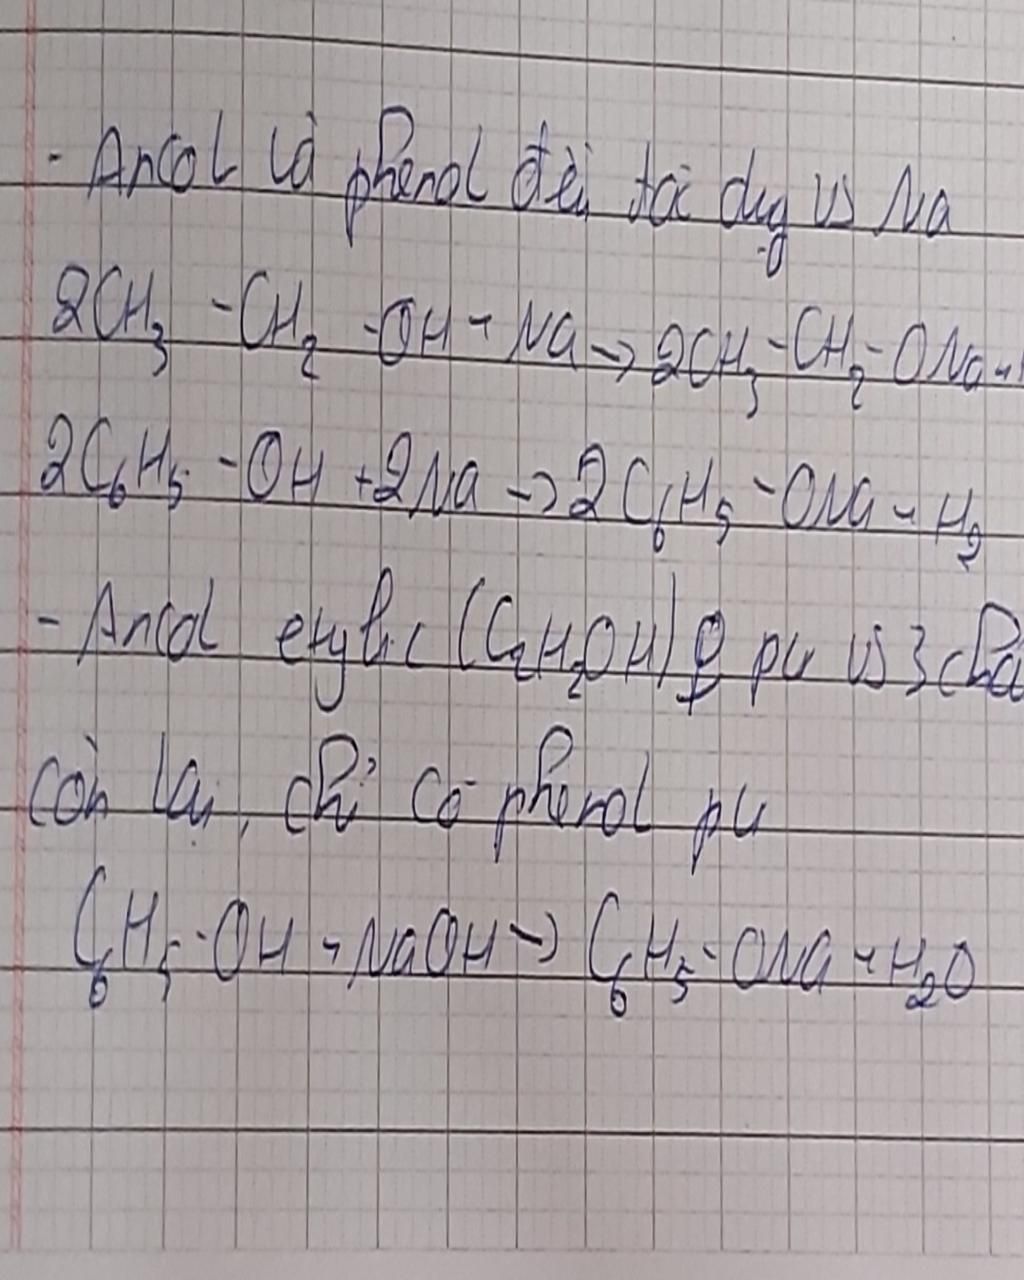 - Ancol và phenol đều tác dụng vs Na
2CH₃ - CH₂ - OH + Na → 2CH₃ - CH₂ - ONa +
2C₆H₅ - OH + 2Na → 2C₆H₅ - ONa + H₂
- Ancol etylic (C₂H₂OH) pu vs 3 chấ
còn lại, chỉ có phenol pu
C₆H₅ - OH + NaOH → C₆H₅ - ONa + H₂O